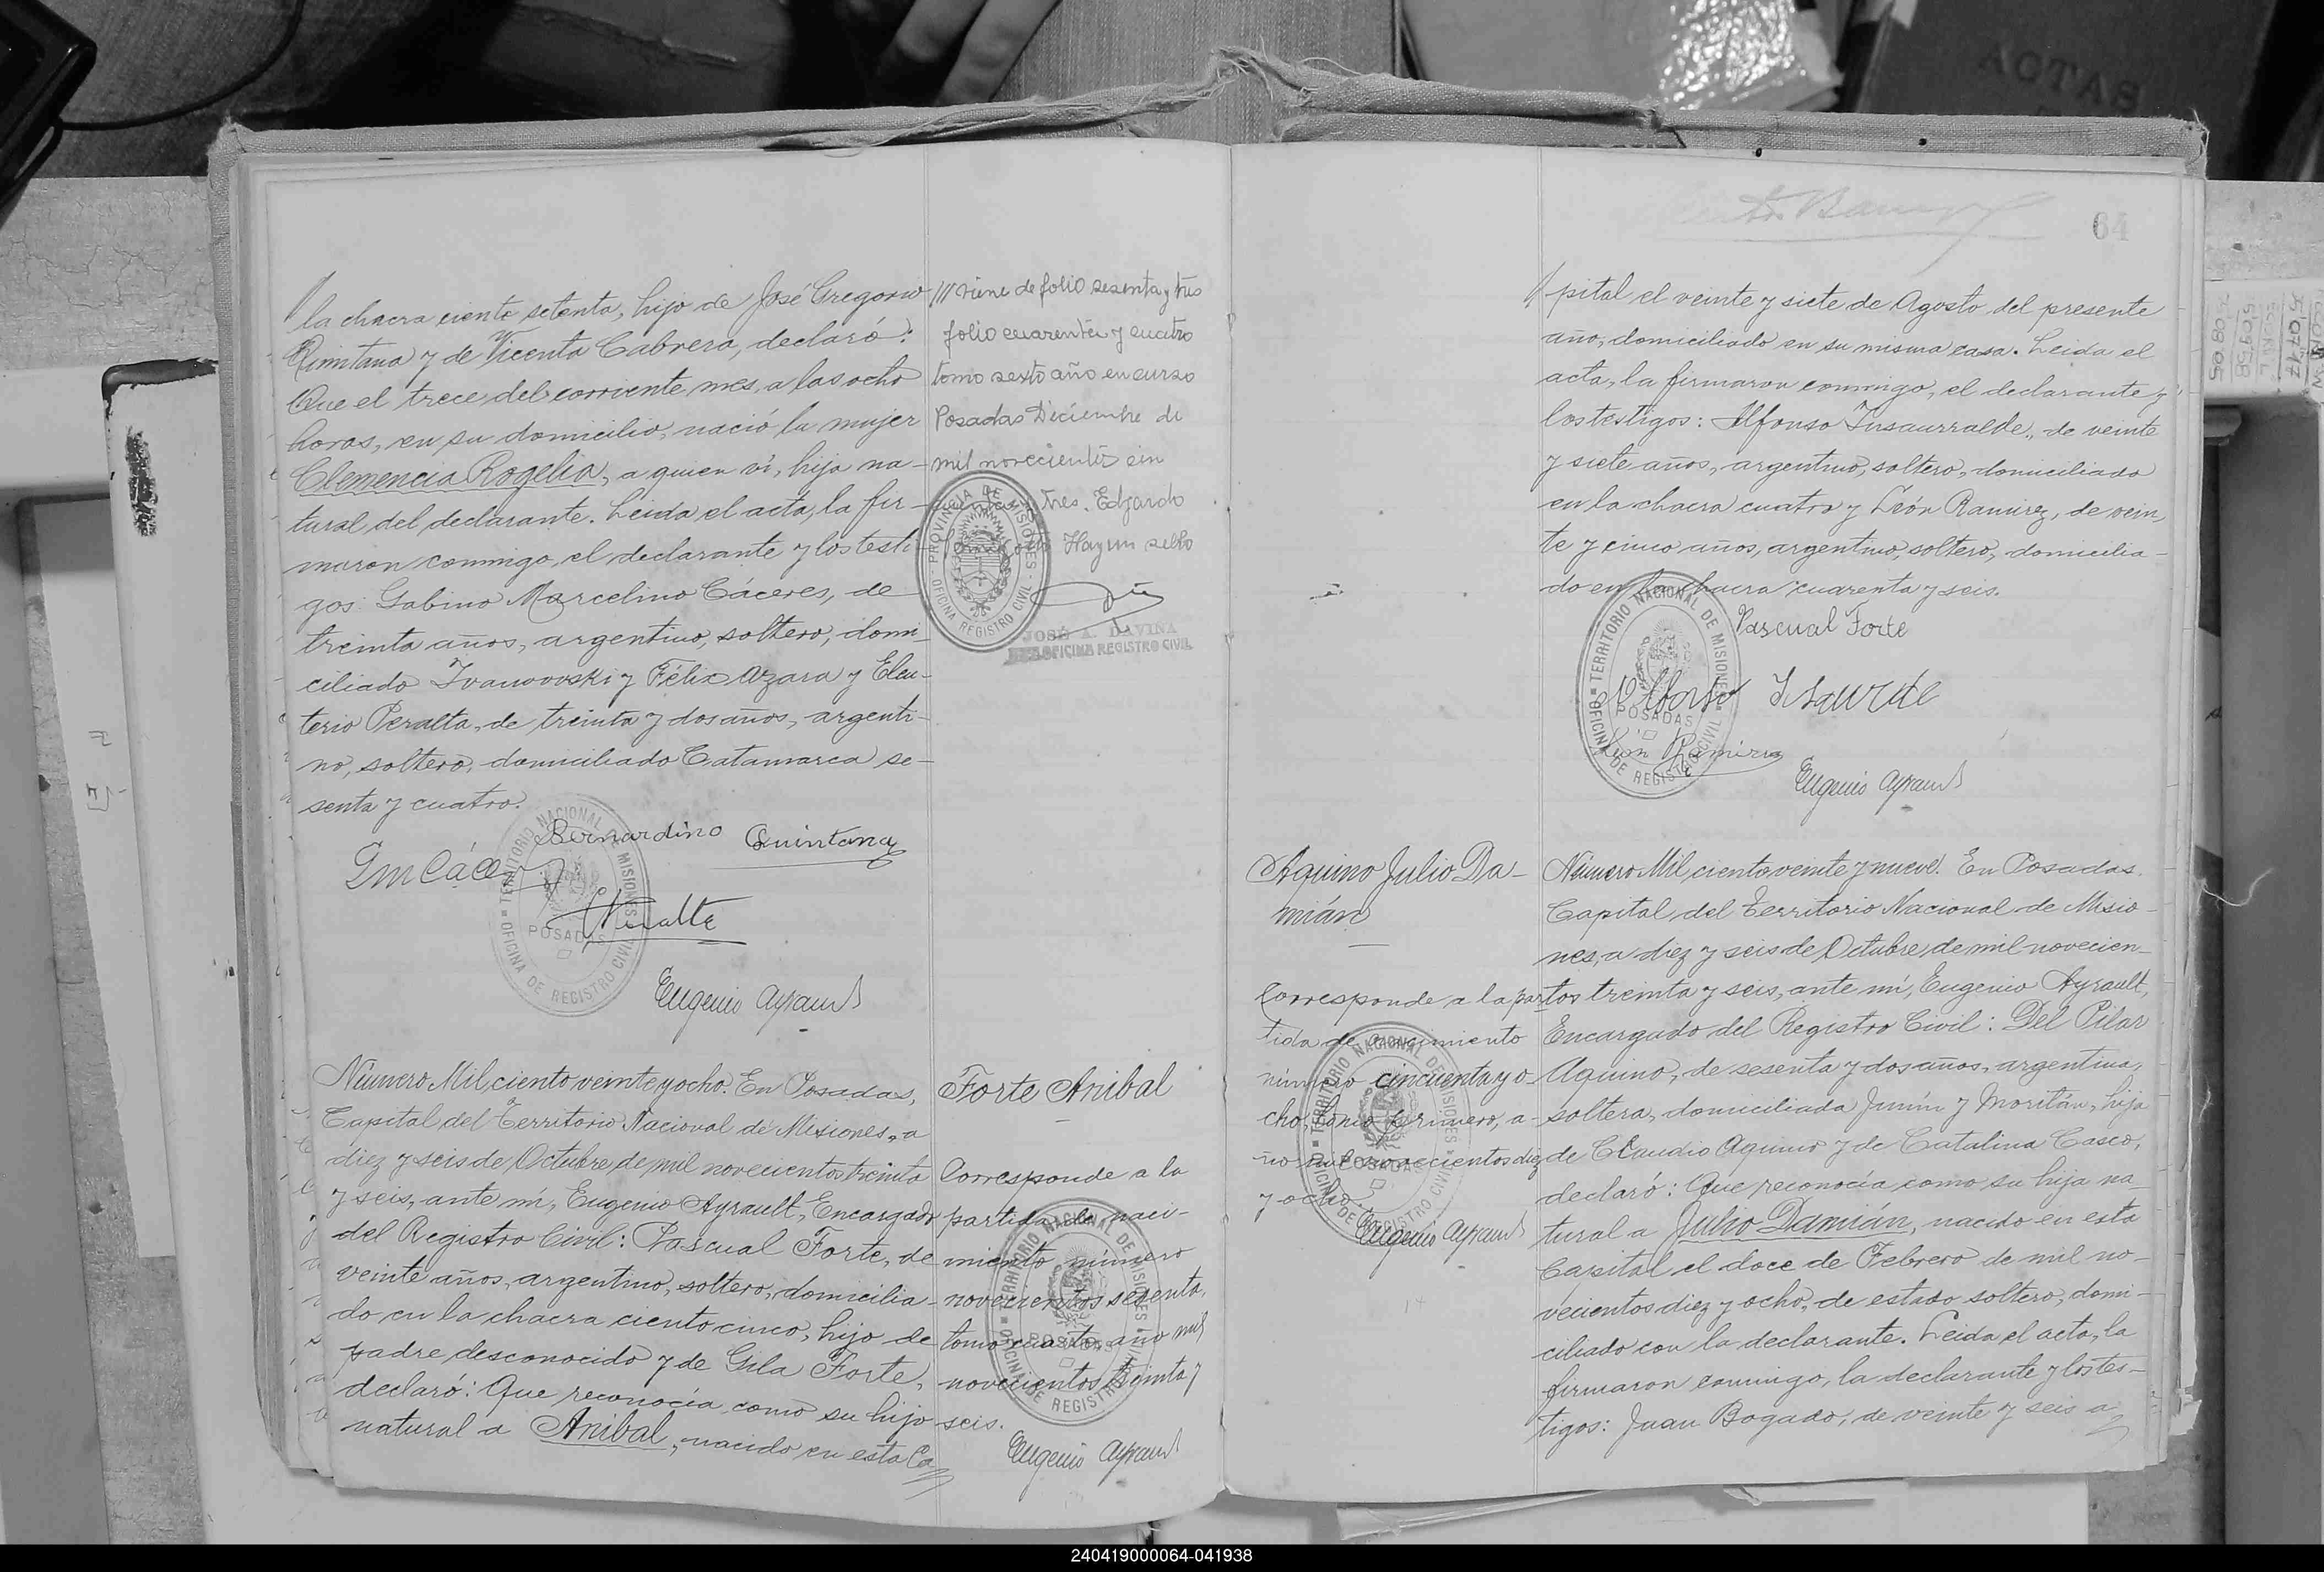 la chacra ciento setenta, hijo de José Gregorio
Quintana y de Vicenta Cabrera, declaró:
Que el trece del corriente mes, a las ocho
horas, en su domicilio, nació la mujer
Clemencia Rogelia, a quien ví, hija na-
tural del declarante. Leida el acta, la fir-
maron conmigo, el declarante y los testi-
gos: Gabino Marcelino Cáceres, de
treinta años, argentino, soltero, domi-
ciliado Ivanovski y Félix Azara y Eleu-
terio Peralta, de treinta y dos años, argenti-
no, soltero, domiciliado Catamarca se-
senta y cuatro.
Bernardino Quintana
Eugenio Ayrault
/// viene de folio sesenta y tres
folio cuarenta y cuatro
tomo sexto año en curso
Posadas Diciembre de
mil novecientos cin
cuenta y tres. Edgardo
Hay un sello
PROVINCIA DE MISIONES
OFICINA REGISTRO CIVIL
JOSÉ A. DAVIÑA
OFICINA REGISTRO CIVIL
TERRITORIO NACIONAL DE MISIONES
POSADAS
OFICINA DE REGISTRO CIVIL
Número Mil ciento veinte y ocho. En Posadas,
Capital del Territorio Nacional de Misiones, a
diez y seis de Octubre de mil novecientos treinta
y seis, ante mí, Eugenio Ayrault, Encargado
del Registro Civil: Pascual Forte, de
veinte años, argentino, soltero, domicilia-
do en la chacra ciento cinco, hijo de
padre desconocido y de Gila Forte,
declaró: Que reconocía como su hijo
natural a Anibal, nacido en esta Ca
Forte Anibal
Corresponde a la
partida de naci-
miento número
novecientos sesenta,
tomo cuarto, año mil
novecientos treinta y
seis.
Eugenio Ayrault
TERRITORIO NACIONAL DE MISIONES
POSADAS
OFICINA DE REGISTRO CIVIL
64
pital el veinte y siete de Agosto del presente
año, domiciliado en su misma casa. Leida el
acta, la firmaron conmigo, el declarante y
los testigos: Alfonso Insaurralde, de veinte
y siete años, argentino, soltero, domiciliado
en la chacra cuatro y León Ramirez, de vein
te y cinco años, argentino, soltero, domicilia-
do en la chacra cuarenta y seis.
Pascual Forte
León Ramirez
Eugenio Ayrault
TERRITORIO NACIONAL DE MISIONES
POSADAS
OFICINA DE REGISTRO CIVIL
Aquino Julio Da-
mián
Corresponde a la par
tida de nacimiento
número cincuenta y o-
cho, tomo primero, a-
ño mil novecientos diez
y ocho.
Eugenio Ayrault
TERRITORIO NACIONAL DE MISIONES
POSADAS
OFICINA DE REGISTRO CIVIL
Número Mil ciento veinte y nueve. En Posadas,
Capital del Territorio Nacional de Misio-
nes, a diez y seis de Octubre de mil novecien-
tos treinta y seis, ante mí, Eugenio Ayrault,
Encargado del Registro Civil: Del Pilar
Aquino, de sesenta y dos años, argentina,
soltera, domiciliada Junín y Moritán, hija
de Claudio Aquino y de Catalina Casco,
declaró: Que reconocía como su hijo na
tural a Julio Damián, nacido en esta
Capital el doce de Febrero de mil no-
vecientos diez y ocho, de estado soltero, domi-
ciliado con la declarante. Leida el acta, la
firmaron conmigo, la declarante y los tes-
tigos: Juan Bogado, de veinte y seis a
ACTAS
240419000064-041938